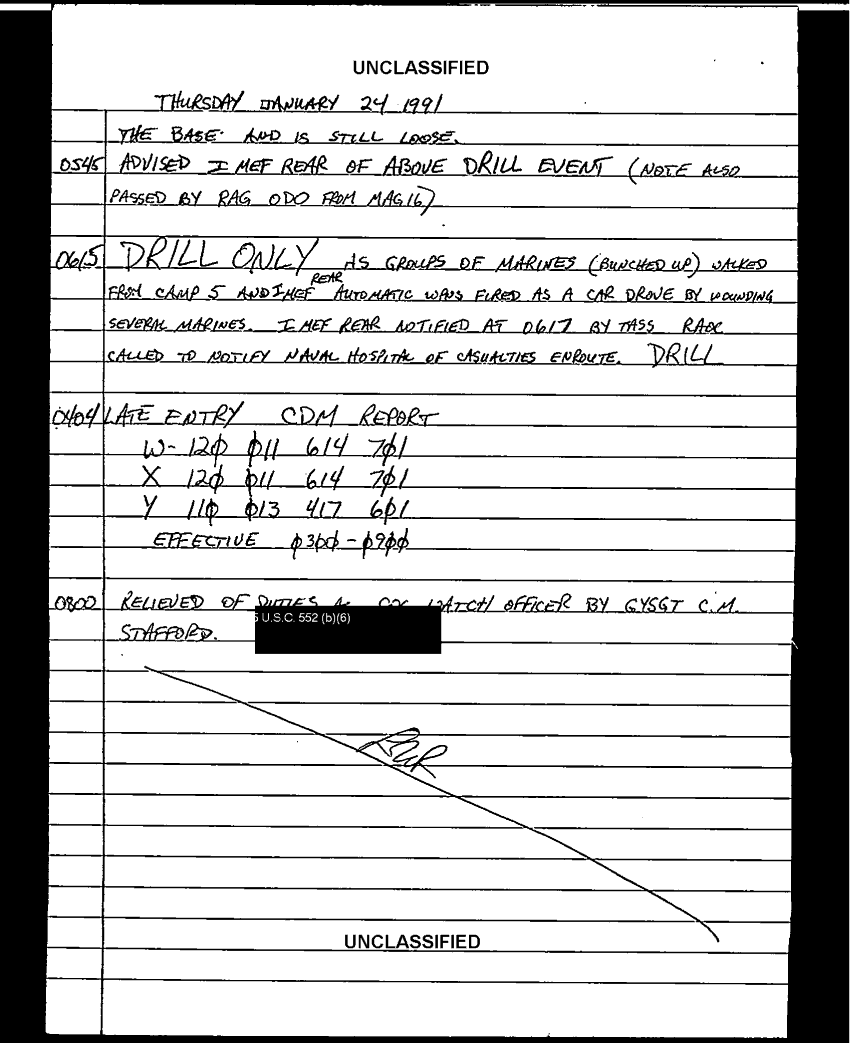 UNCLASSIFIED
THURSDAY JANUARY 24 1991
THE BASE AND IS STILL LOOSE.
0545 ADVISED I MEF REAR OF ABOVE DRILL EVENT (NOTE ALSO
PASSED BY RAG ODO FROM MAG16)
0615 DRILL ONLY AS GROUPS OF MARINES (BUNCHED UP) WALKED
REAR
FROM CAMP 5 AND I MEF AUTOMATIC WPNS FIRED AS A CAR DROVE BY WOUNDING
SEVERAL MARINES. I MEF REAR NOTIFIED AT 0617 BY TASS RAOC
CALLED TO NOTIFY NAVAL HOSPITAL OF CASUALTIES ENROUTE. DRILL
0404 LATE ENTRY CDM REPORT
W- 12φ φ11 614 7φ1
X 12φ φ11 614 7φ1
Y 11φ φ13 417 6φ1
EFFECTIVE φ3φφ - φ9φφ
0800 RELIEVED OF DUTIES WATCH OFFICER BY GYSGT C.M.
STAFFORD.
5 U.S.C. 552 (b)(6)
UNCLASSIFIED